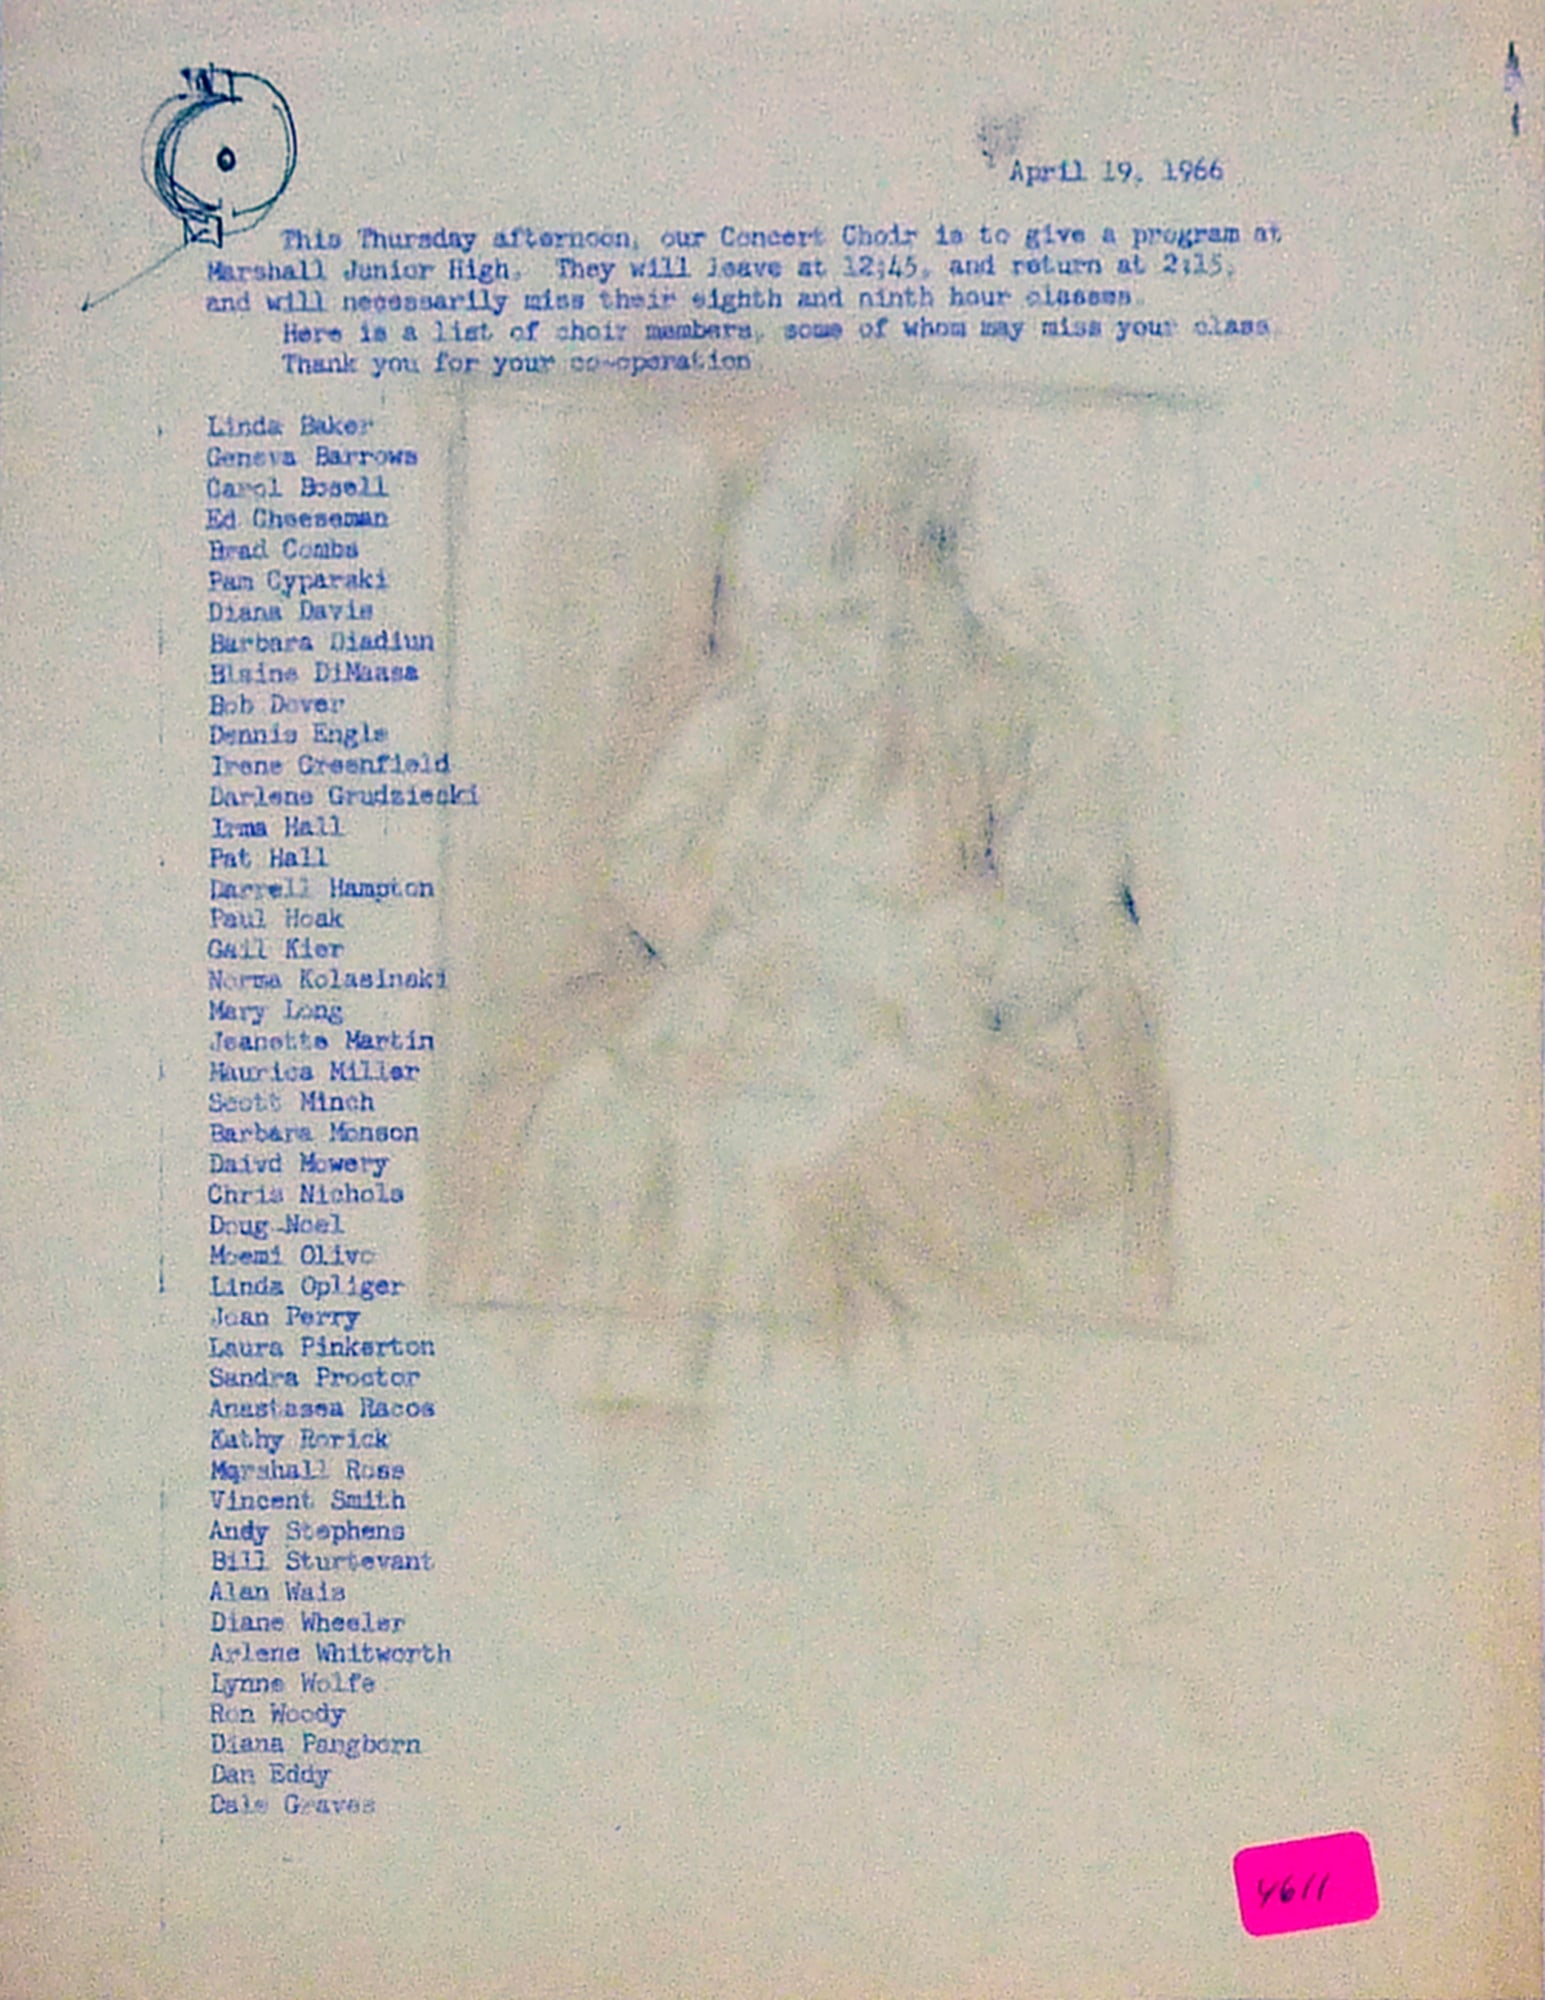 April 19, 1966
This Thursday afternoon, our Concert Choir is to give a program at
Marshall Junior High. They will leave at 12:45, and return at 2:15,
and will necessarily miss their eighth and ninth hour classes.
Here is a list of choir members, some of whom may miss your class.
Thank you for your co-operation.
Linda Baker
Geneva Barrows
Carol Bosell
Ed Cheeseman
Brad Combs
Pam Cyparski
Diana Davis
Barbara Diadiun
Elaine DiMassa
Bob Dover
Dennis Engle
Irene Greenfield
Darlene Grudziecki
Irma Hall
Pat Hall
Darrell Hampton
Paul Hoak
Gail Kier
Norma Kolasinski
Mary Long
Jeanette Martin
Maurica Miller
Scott Minch
Barbara Monson
Daivd Mowery
Chris Nichols
Doug Noel
Moemi Olivo
Linda Opliger
Joan Perry
Laura Pinkerton
Sandra Proctor
Anastasea Racos
Kathy Rorick
Marshall Ross
Vincent Smith
Andy Stephens
Bill Sturtevant
Alan Wais
Diane Wheeler
Arlene Whitworth
Lynne Wolfe
Ron Woody
Diana Pangborn
Dan Eddy
Dale Graves
4611